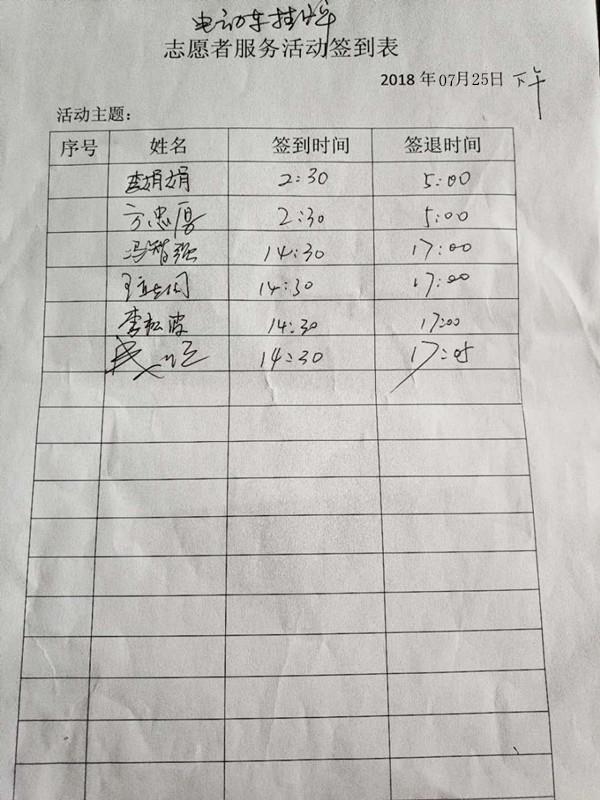 电动车挂牌
志愿者服务活动签到表
2018年07月25日 下午
活动主题:
序号 姓名 签到时间 签退时间
李娟娟 2:30 5:00
方忠厚 2:30 5:00
冯智强 14:30 17:00
14:30 17:00
李松波 14:30 17:00
14:30 17:05